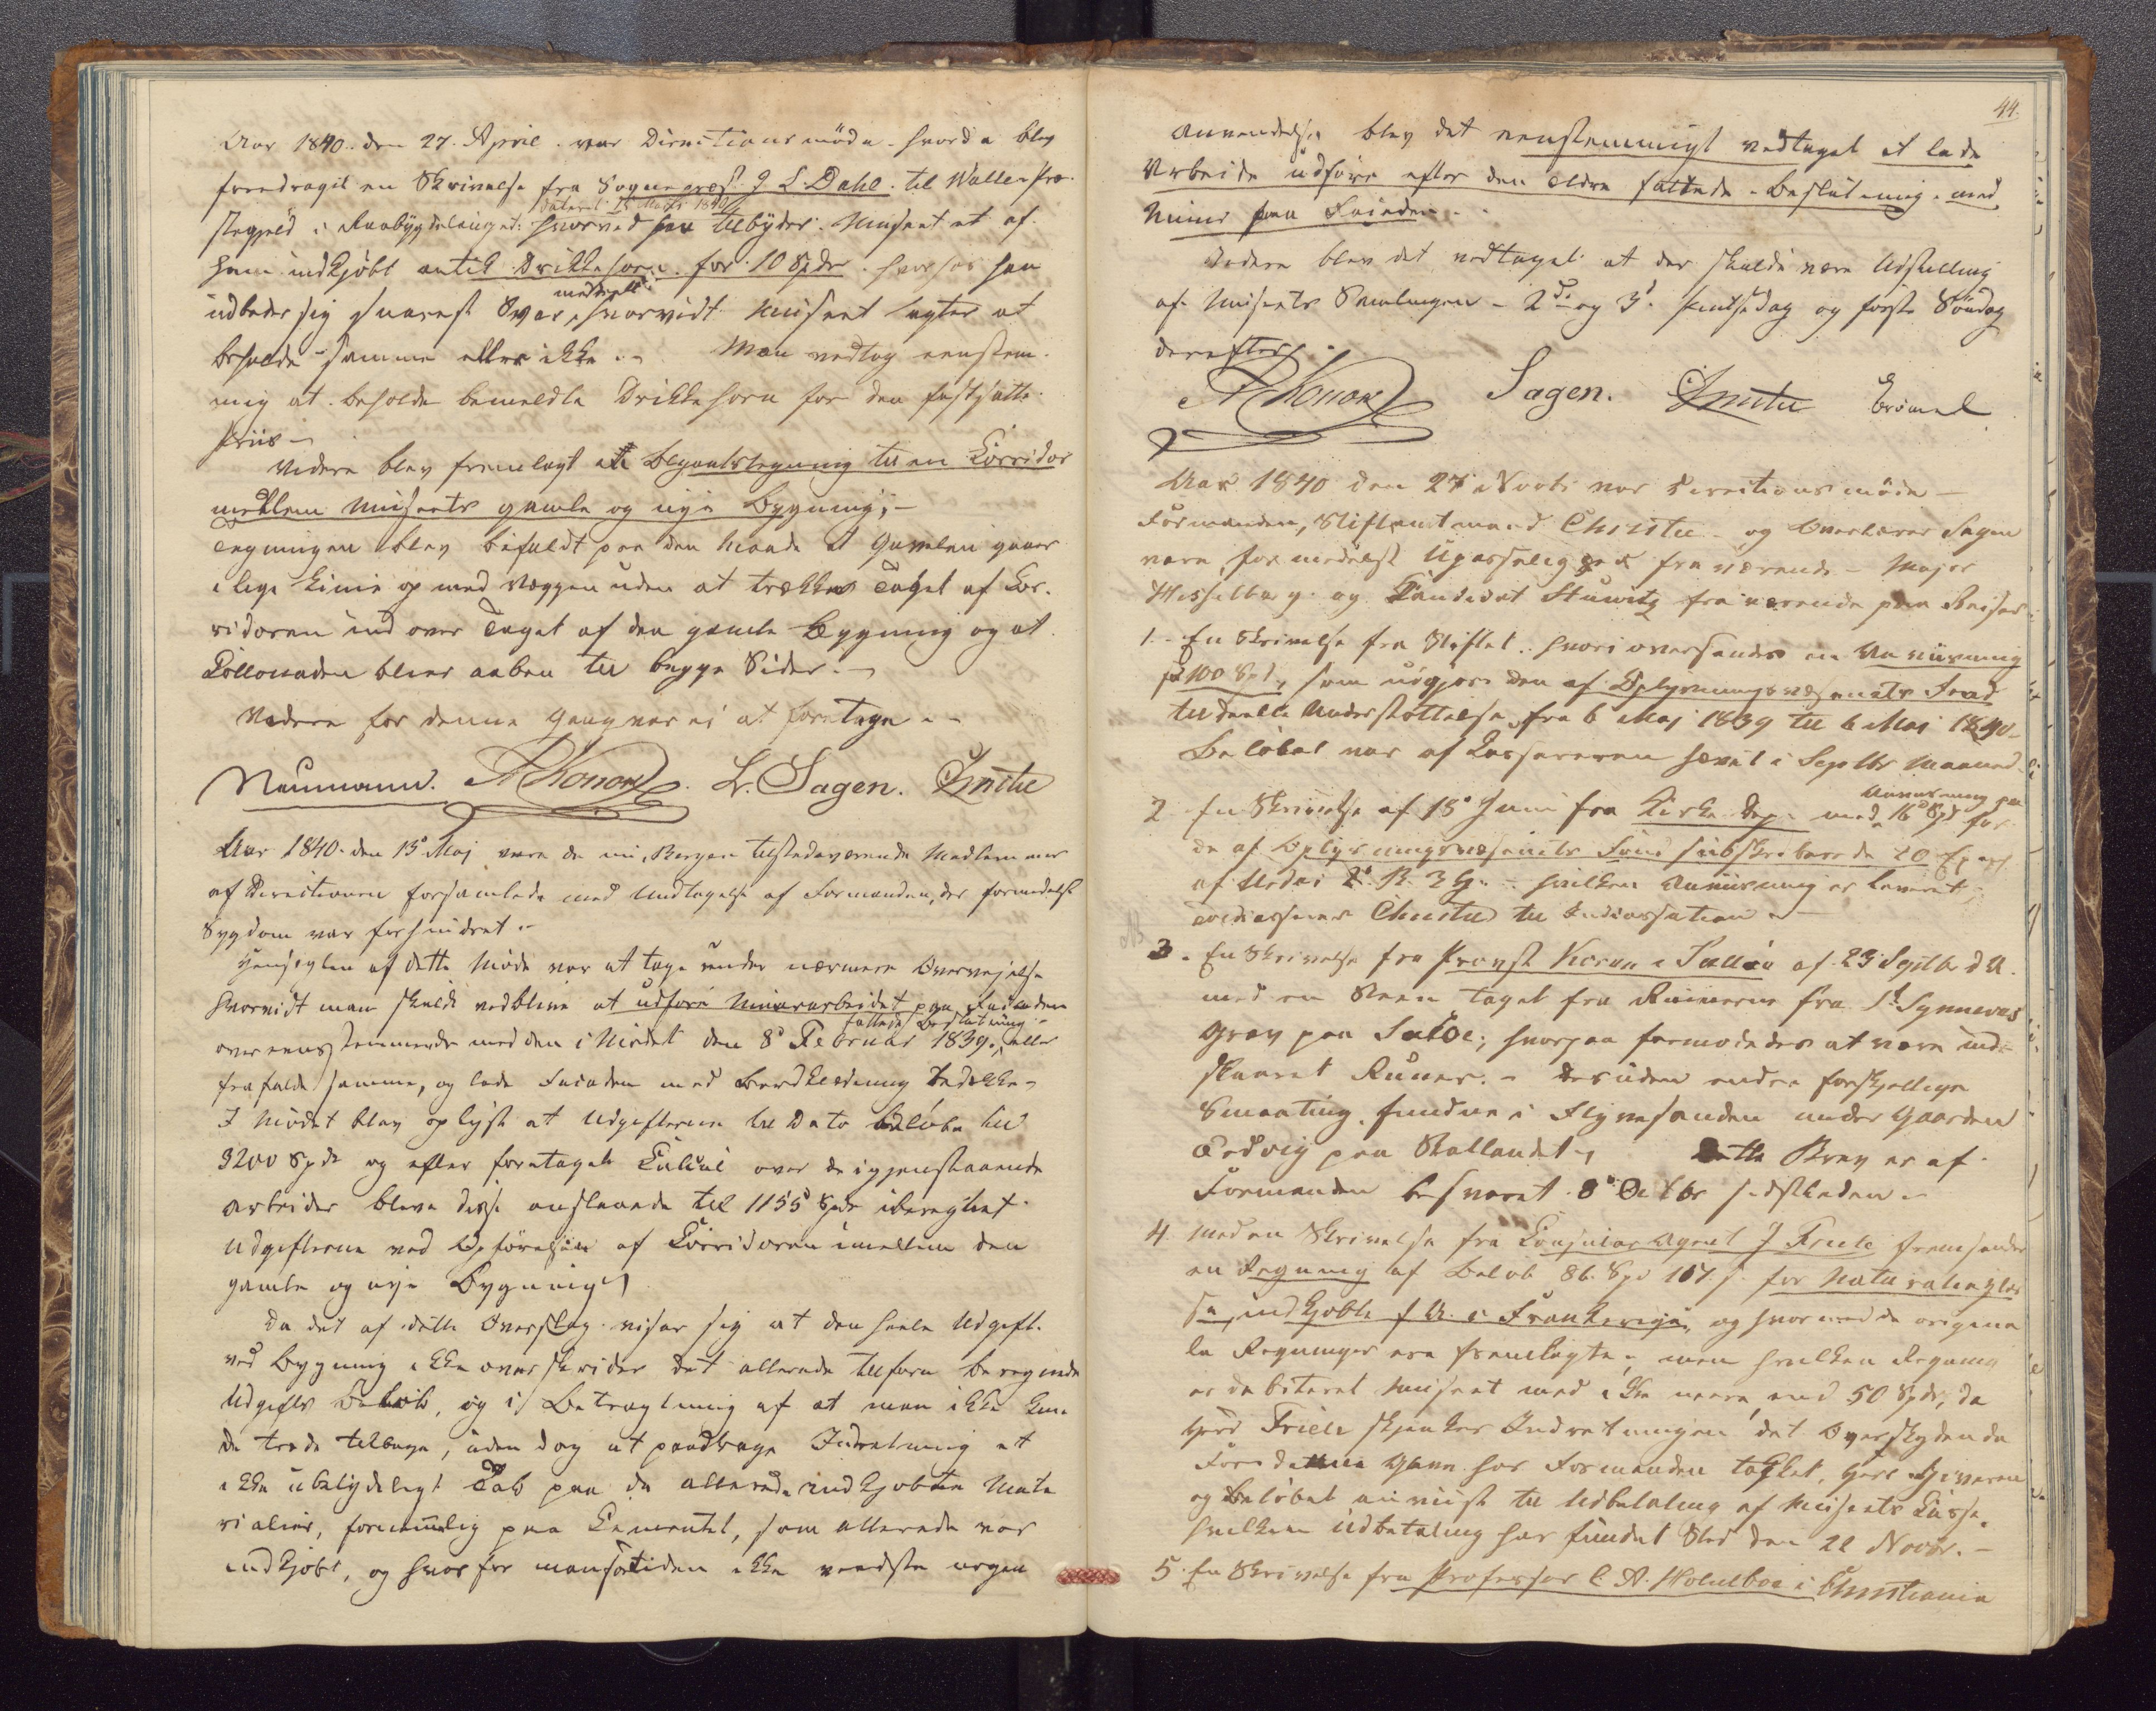 Aar 1840. den 27. April. var Directionsmöde. hvorda blev
foredragit en Skrivelse fra Sognepræst J. L. Dahl. til Walle Præ-
Dateret 25 Marts 1840
stegjeld i Raabygdelauget: hvorved han tilbyder. Museet et af
ham indkjöbt antik Drikkehorn for 10 Spdr. hvorfor han
udbeder sig snarest Svar meddeelt, hvorvidt Museet agter at
beholde samme eller ikke. - Man vedtog eenstem-
mig at beholde bemeldte Drikkehorn for den fastsatte
Priis -
Videre blev fremlagt en Bygnetstegning til en Corridor
mellem Museets gamle og nye Bygning; -
Tegningen blev bifaldt paa den Maade at Gavelen gaaer
i lige Linie op med Væggen uden at trække Taget af Cor-
ridoren ind over Taget af den gamle Bygning og at
Collonaden bliver aaben til begge Sider. -
Videre for denne Gang var ei at foretage. -
Neumann. Konow. L. Sagen. Christie
Aar 1840. den 15de Maj vare de i Bergen tilstedeværende Medlemmer
af Directionen forsamlede med Undtagelse af Formanden, der formedelst
Sygdom var forhindret. -
Hensigten af dette Möde var at tage under nærmere Overvejelse
hvorvidt man skulde vedblive at udföre Muurarbeidet paa Facaden
overeensstemmende med den i Mödet den 8de Februar 1839. fattede Beslutning - eller
frafalde samme, og lade Facaden med Bordklædning bedække -
I Mödet blev oplyst at Udgifterne til Dato belöbe til
3200 Spdr og efter foretaget Calcul over de igjenstaaende
Arbeider bleve disse anslaaede til 1155 Spdr iberegnet
Udgifterne ved Opförelsen af Corridoren imellem den
gamle og nye Bygning
Da det af dette Overslag viser sig at den heele Udgift
ved Bygning ikke overskrider det allerede tilforn beregnede
Udgifts Belöb, og i Betragtning af at man ikke kun-
de træde tilbage, uden dog at paadrage Indretning et
ikke ubetydeligt Tab paa de allerede indkjöbte Mate
rialier, fornemmelig paa Cementet, som allerede var
indkjöbt, og hvorfor man for Tiden ikke vidste nogen
44.
Anvendelse blev det eenstemmigt vedtaget at lade
Arbeide udföre efter den ældre fattede Beslutning. med
Muur paa Facaden. -
Videre blev det vedtaget at der skulde være Udstilling
af Museets Samlinger - 2den og 3die Pintsedag og förste Söndag
derefter. -
Konow Sagen. Christie
Aar 1840 den 27 Novbr var Directionsmöde -
Formanden, Stiftamtmand Christie - og Overlærer Sagen
vare formedelst Upasselighed fraværende - Major
Hesselberg. og Candidat Stuwitz fraværende paa Reiser
1. - En Skrivelse fra Stiftet. hvori oversendes en Anviisning
p 100 Spd, som udgjör den af Oplysningsvæsenets Fond
tildeelte Understöttelse, fra 6 Maj 1839 til 6 Mai 1840.
Belöbet var af Cassereren hævet i Septbr Maaned.
2 En Skrivelse af 15de Juni fra Kirke Dep. med Anviisning paa 16 Spd for
de af Oplysningsvæsenets Fond subskriberede 20 Expl
af Urda 2de B. 3 H. - hvilken Anviisning er leveret
Christie til Indcassation -
3. En Skrivelse fra Provst Koren i Selloe af 23 Septbr d. A.
med en Steen taget fra Ruinerne fra St Synneves
Grav paa Selöe; hvorpaa formodedes at være ind-
skaaret Runer. - desuden endre forskjellige
Smaating. fundne i Flyvesanden under Gaarden
Ervig paa Statlandet, Dette Brev er af
Formanden besvaret 8de Octbr sidstleden -
4. Med en Skrivelse fra Consular Agent J Friele fremsender
en Regning af Belöb 86. Spd 107 s. for Naturalier
indkjöbte f. A. i Frankerige, og hvormed de origina
le Regninger ere fremlagte; men hvilken Regning
er debiteret Museet med ikke meere, end 50 Spdr; da
Herr Friele skjenker Indretningen det Overskydende
For denne Gave har Formanden takket Herr Giveren
og Belöbet anviist til Udbetaling af Museets Casse.
hvilken Udbetaling har fundet Sted den 22 Novbr. -
5. En Skrivelse fra Professor C. A. Holmboe i Christiania